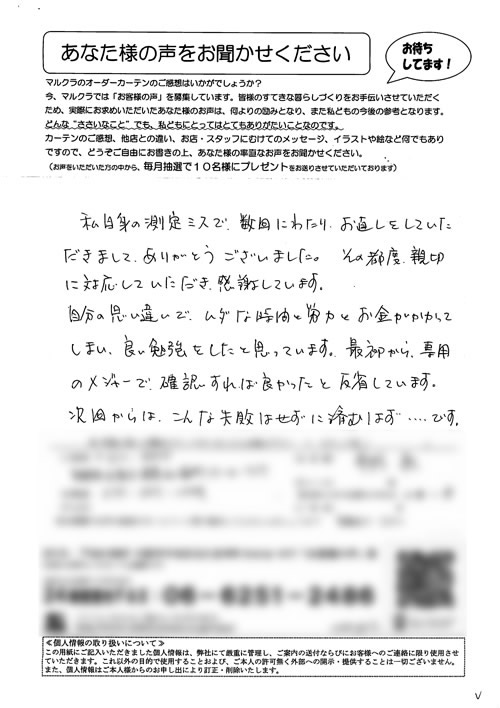 あなた様の声をお聞かせください
お待ち
してます！
マルクラのオーダーカーテンのご感想はいかがでしょうか？
今、マルクラでは「お客様の声」を募集しています。皆様のすてきな暮らしづくりをお手伝いさせていただく
ため、実際にお求めいただいたあなた様の声は、何よりの励みとなり、また私どもの今後の参考となります。
どんな“ささいなこと”でも、私どもにとってはとてもありがたいことなのです。
カーテンのご感想、他店との違い、お店・スタッフにむけてのメッセージ、イラストや絵など何でもあり
ですので、どうぞご自由にお書きの上、あなた様の率直なお声をお聞かせください。
（お声をいただいた方の中から、毎月抽選で１０名様にプレゼントをお送りさせていただいております）
私自身の測定ミスで、数回にわたり、お直しをしていた
だきまして、ありがとうございました。その都度、親切
に対応していただき、感謝しています。
自分の思い違いで、ムダな時間と労力とお金がかかって
しまい、良い勉強をしたと思っています。最初から、専用
のメジャーで、確認すれば良かったと反省しています。
次回からは、こんな失敗はせずに済むはず‥‥です。
06-6251-2486
≪個人情報の取り扱いについて≫
この用紙にご記入いただきました個人情報は、弊社にて厳重に管理し、ご案内の送付ならびにお客様へのご連絡に限り使用させ
ていただきます。これ以外の目的で使用することおよび、ご本人の許可無く外部への開示・提供することは一切ございません。
また、個人情報はご本人様からのお申し出により訂正・削除いたします。